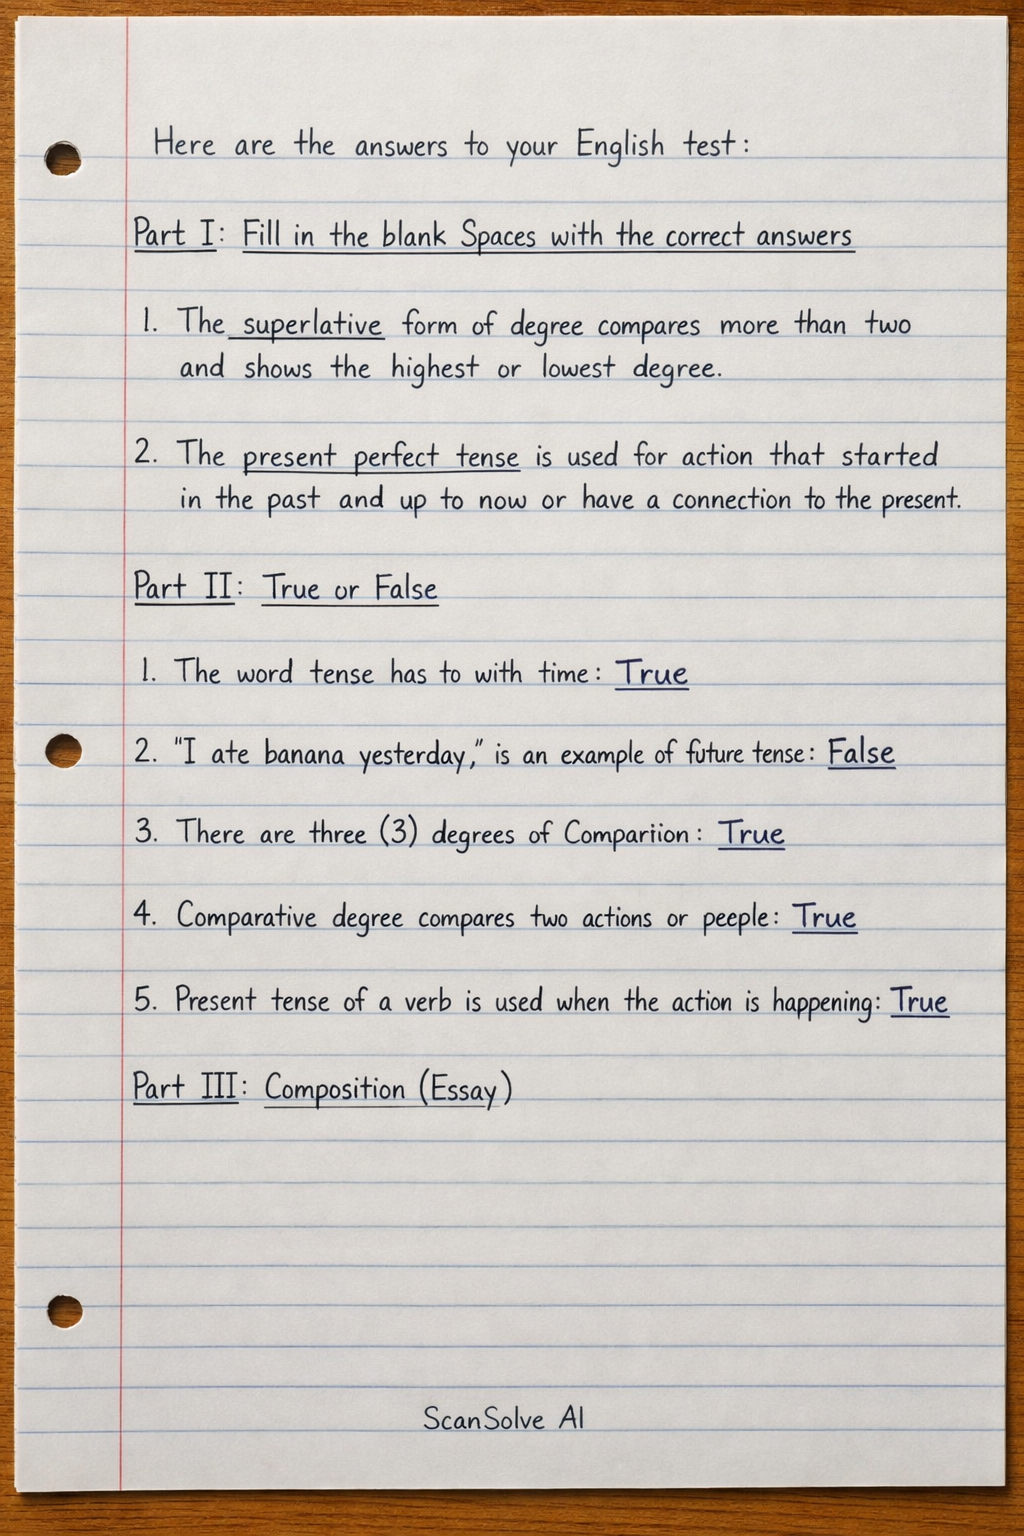 Here are the answers to your English test:
Part I: Fill in the blank Spaces with the correct answers
1. The superlative form of degree compares more than two
and shows the highest or lowest degree.
2. The present perfect tense is used for action that started
in the past and up to now or have a connection to the present.
Part II: True or False
1. The word tense has to with time: True
2. "I ate banana yesterday," is an example of future tense: False
3. There are three (3) degrees of Compariion: True
4. Comparative degree compares two actions or peeple: True
5. Present tense of a verb is used when the action is happening: True
Part III: Composition (Essay)
ScanSolve AI